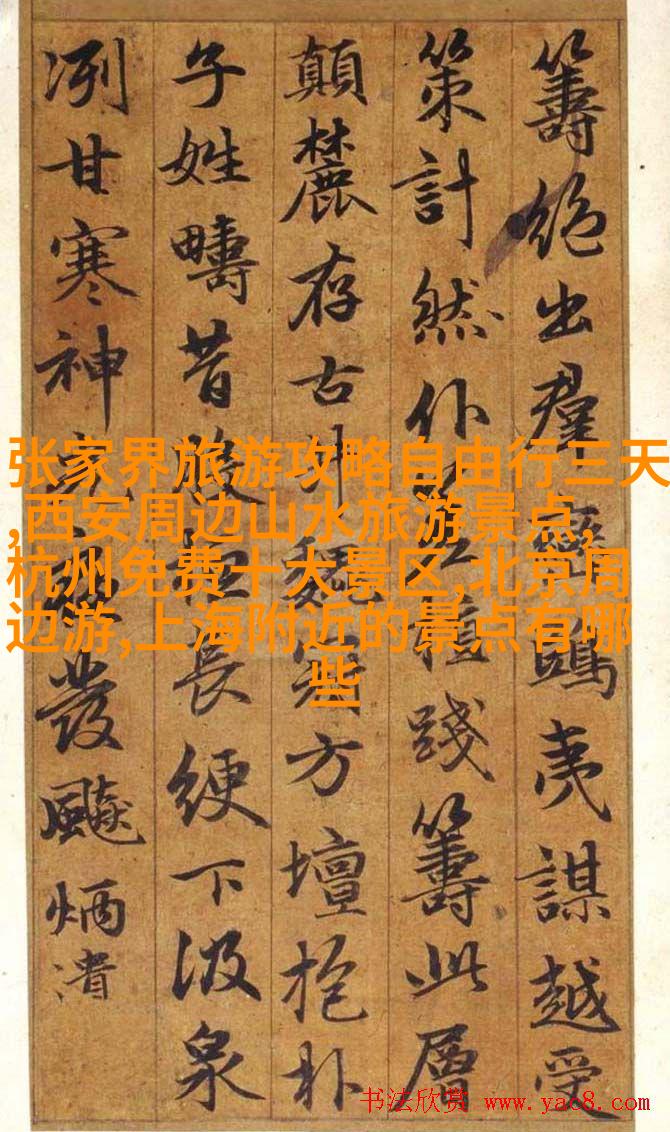 籌絕出羣鴟夷謀越受
策計然仆踐籌此層
顛麓存古井方壇抱朴
子姓疇昔長綆下汲泉
冽甘寒神發飈炳潰
张家界旅游攻略自由行三天
,西安周边山水旅游景点,
杭州免费十大景区,北京周
边游,上海附近的景点有哪
些
书法欣赏 www.yac8.com